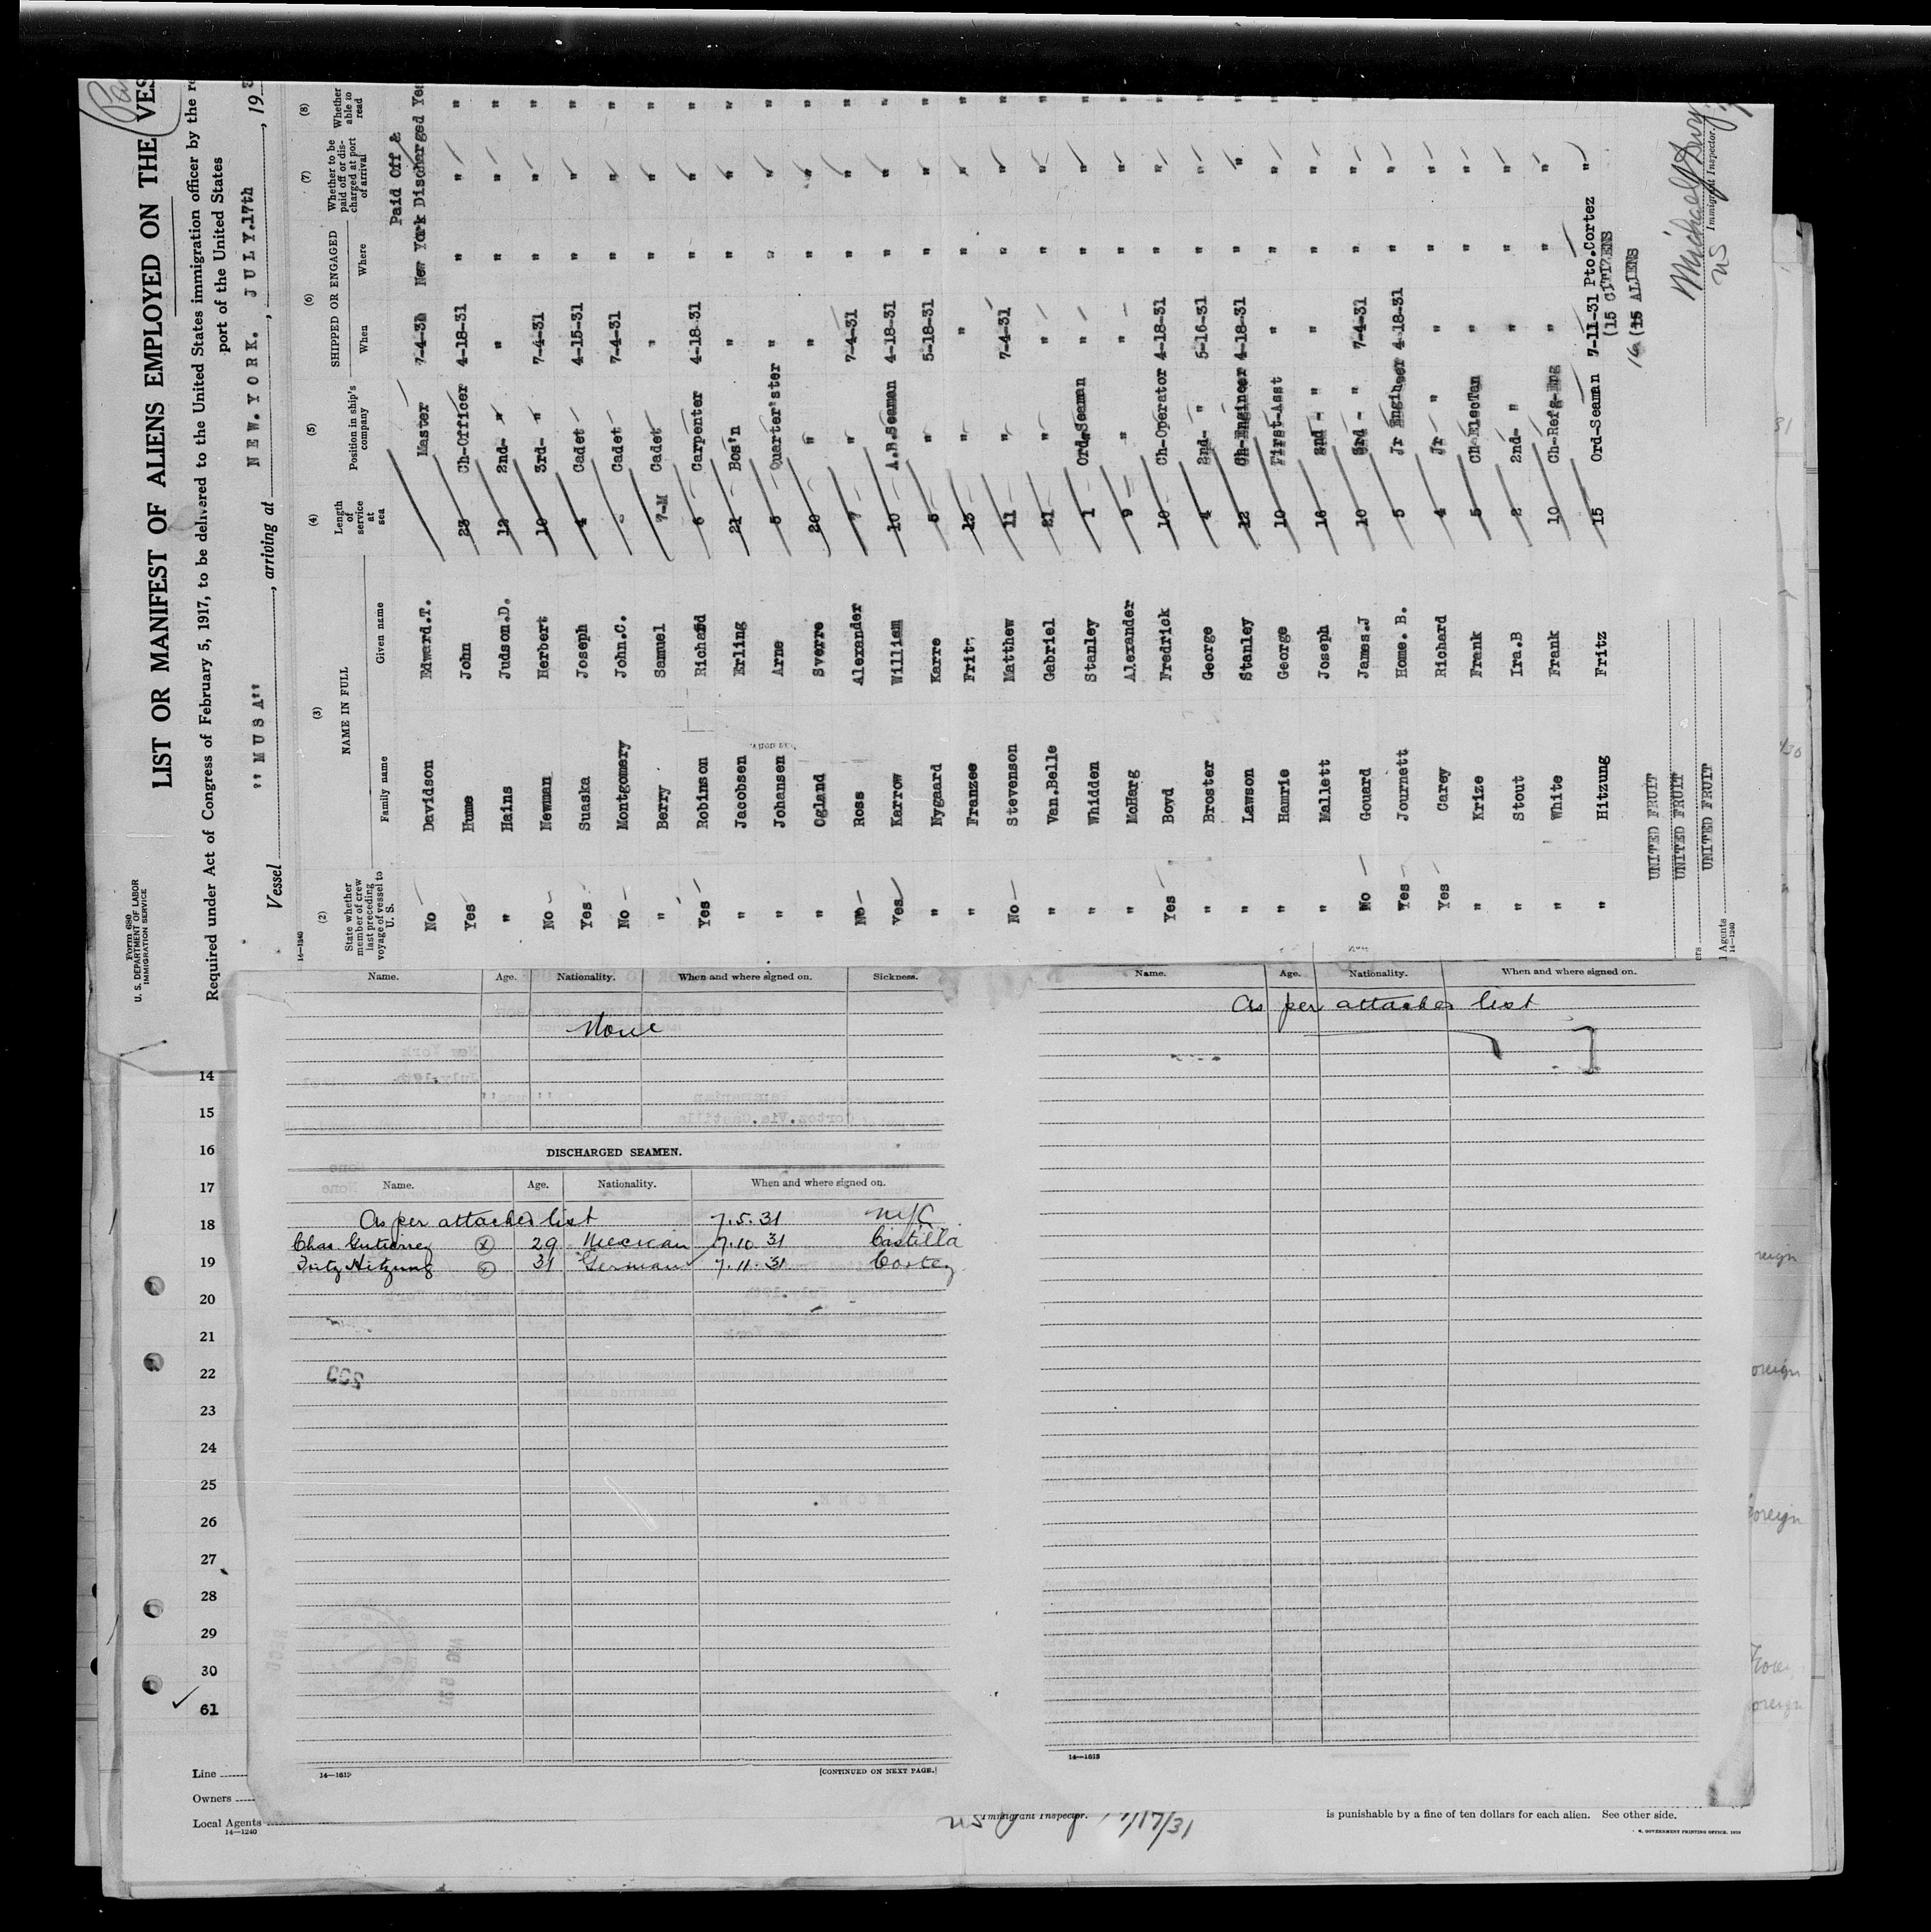 Form 680
U. S. DEPARTMENT OF LABOR
IMMIGRATION SERVICE
LIST OR MANIFEST OF ALIENS EMPLOYED ON THE VES
Required under Act of Congress of February 5, 1917, to be delivered to the United States immigration officer by the re
port of the United States
Vessel "MUSA", arriving at NEW.YORK. JULY.17th, 19
14—1240
(2) (3) (4) (5) (6) (7) (8)
State whether member of crew last preceding voyage of vessel to U. S.
NAME IN FULL
Family name Given name
Length of service at sea
Position in ship's company
SHIPPED OR ENGAGED
When Where
Whether to be paid off or discharged at port of arrival
Whether able to read
Paid Off &
No Davidson Edward.T. Master 7-4-31 New York Discharged Yes
Yes Hume John 23 Ch-Officer 4-18-31 " " "
" Hains Judson.D. 12 2nd- " " " " "
No Newman Herbert 10 3rd- " 7-4-31 " " "
Yes Suaska Joseph 4 Cadet 4-15-31 " " "
No Montgomery John.C. - Cadet 7-4-31 " " "
" Berry Samuel 7-M Cadet " " " "
Yes Robinson Richard 6 Carpenter 4-18-31 " " "
" Jacobsen Erling 21 Bos'n " " " "
" Johansen Arne 5 Quarter'ster " " " "
" Ogland Sverre 20 " " " " "
No Ross Alexander 7 " 7-4-31 " " "
Yes Karrow William 10 A.B.Seaman 4-18-31 " " "
" Nygaard Karre 5 " 5-18-31 " " "
" Franzee Fritz 13 " " " " "
No Stevenson Matthew 11 " 7-4-31 " " "
" Van.Belle Gabriel 21 " " " " "
" Whidden Stanley 1 Ord.Seaman " " " "
" McHarg Alexander 9 " " " " "
Yes Boyd Fredrick 10 Ch-Operator 4-18-31 " " "
" Broster George 4 2nd- " 5-16-31 " " "
" Lawson Stanley 12 Ch-Engineer 4-18-31 " " "
" Hamrie George 10 First-Asst " " " "
" Mallett Joseph 16 2nd - " " " " "
No Gouard James.J 10 3rd - " 7-4-31 " " "
Yes Journett Home. B. 5 Jr Engineer 4-18-31 " " "
Yes Carey Richard 4 Jr " " " " "
" Krize Frank 5 Ch-ElecTan " " " "
" Stout Ira.B 2 2nd- " " " " "
" White Frank 10 Ch-Refg-Eng " " " "
" Hitzung Fritz 15 Ord-Seaman 7-11-31 Pto.Cortez "
(15 CITIZENS
16 (15 ALIENS
UNITED FRUIT
UNITED FRUIT
UNITED FRUIT
Agents
14—1240
US
Immigrant Inspector.
Name. Age. Nationality. When and where signed on. Sickness.
None
DISCHARGED SEAMEN.
Name. Age. Nationality. When and where signed on.
As per attached list 7.5.31 NYC
Chas Gutierrez 29 Mexican 7.10 31 Castilla
Fritz Hitzung 31 German 7.11.31 Cortez
14—1615
[CONTINUED ON NEXT PAGE.]
Name. Age. Nationality. When and where signed on.
As per attached list
14—1615
14
15
16
17
18
19
20
21
22
23
24
25
26
27
28
29
30
61
Line
Owners
Local Agents
14—1240
US Immigrant Inspector. 7/17/31
is punishable by a fine of ten dollars for each alien. See other side.
oreign
Foreign
oreign